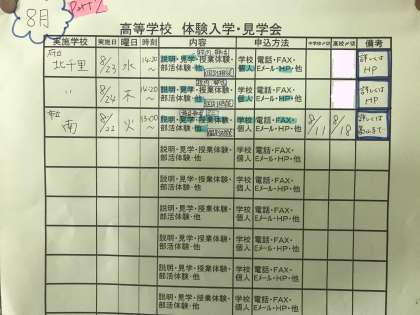 8月
Part2
高等学校 体験入学・見学会
実施学校 実施日 曜日 時刻 内容 申込方法 中学校〆切 高校〆切 備考
府立 北千里 8/23 水 14:20〜 説明・見学・授業体験・ 学校 電話・FAX・ 詳しくは
部活体験・他 個人 Eメール・HP・他 HP
〃 8/24 木 14:20〜 説明・見学・授業体験・ 学校 電話・FAX・ 詳しくは
部活体験・他 個人 Eメール・HP・他 HP
南 8/22 火 15:00〜 説明・見学・授業体験・ 学校 電話・FAX・ 8/11 8/18 詳しくは
部活体験・他 個人 Eメール・HP・他
説明・見学・授業体験・ 学校 電話・FAX・
部活体験・他 個人 Eメール・HP・他
説明・見学・授業体験・ 学校 電話・FAX・
部活体験・他 個人 Eメール・HP・他
説明・見学・授業体験・ 学校 電話・FAX・
部活体験・他 個人 Eメール・HP・他
説明・見学・授業体験・ 学校 電話・FAX・
部活体験・他 個人 Eメール・HP・他
説明・見学・授業体験・ 学校 電話・FAX・
部活体験・他 個人 Eメール・HP・他
説明・見学・授業体験・ 学校 電話・FAX・
部活体験・他 個人 Eメール・HP・他